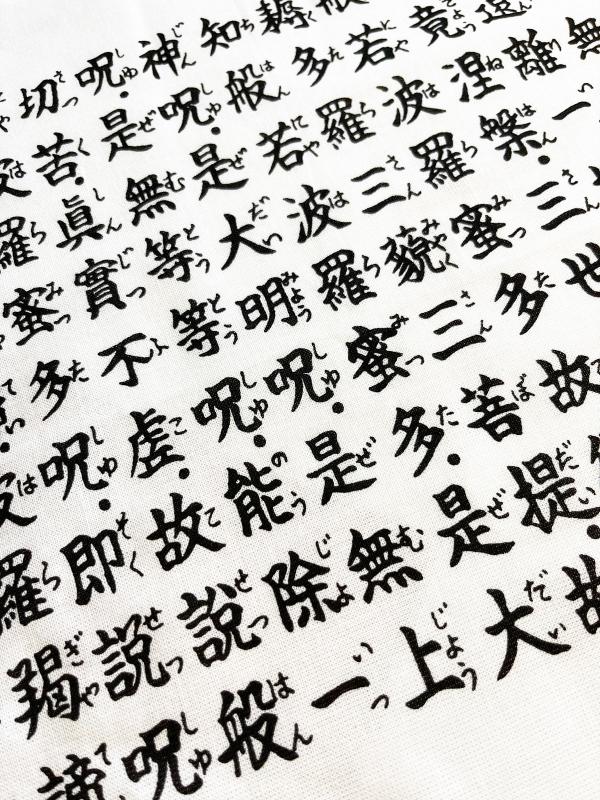 無
遠離一
竟涅槃三世
若波羅蜜多故
耨多羅三藐三菩提故
知般若波羅蜜多是大
神呪是大明呪是無上
呪是無等等呪能除一
切苦眞實不虚故説般
波羅蜜多呪即説呪
諦波羅羯諦